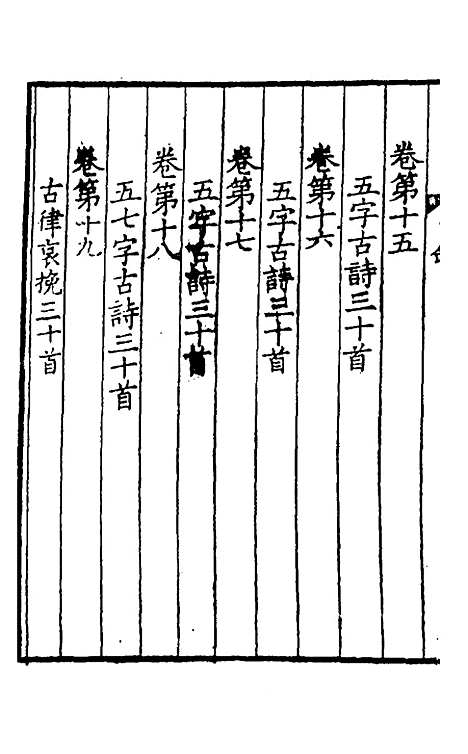 卷第十五
五字古詩三十首
卷第十六
五字古詩三十首
卷第十七
五字古詩三十首
卷第十八
五七字古詩三十首
卷第十九
古律哀挽三十首